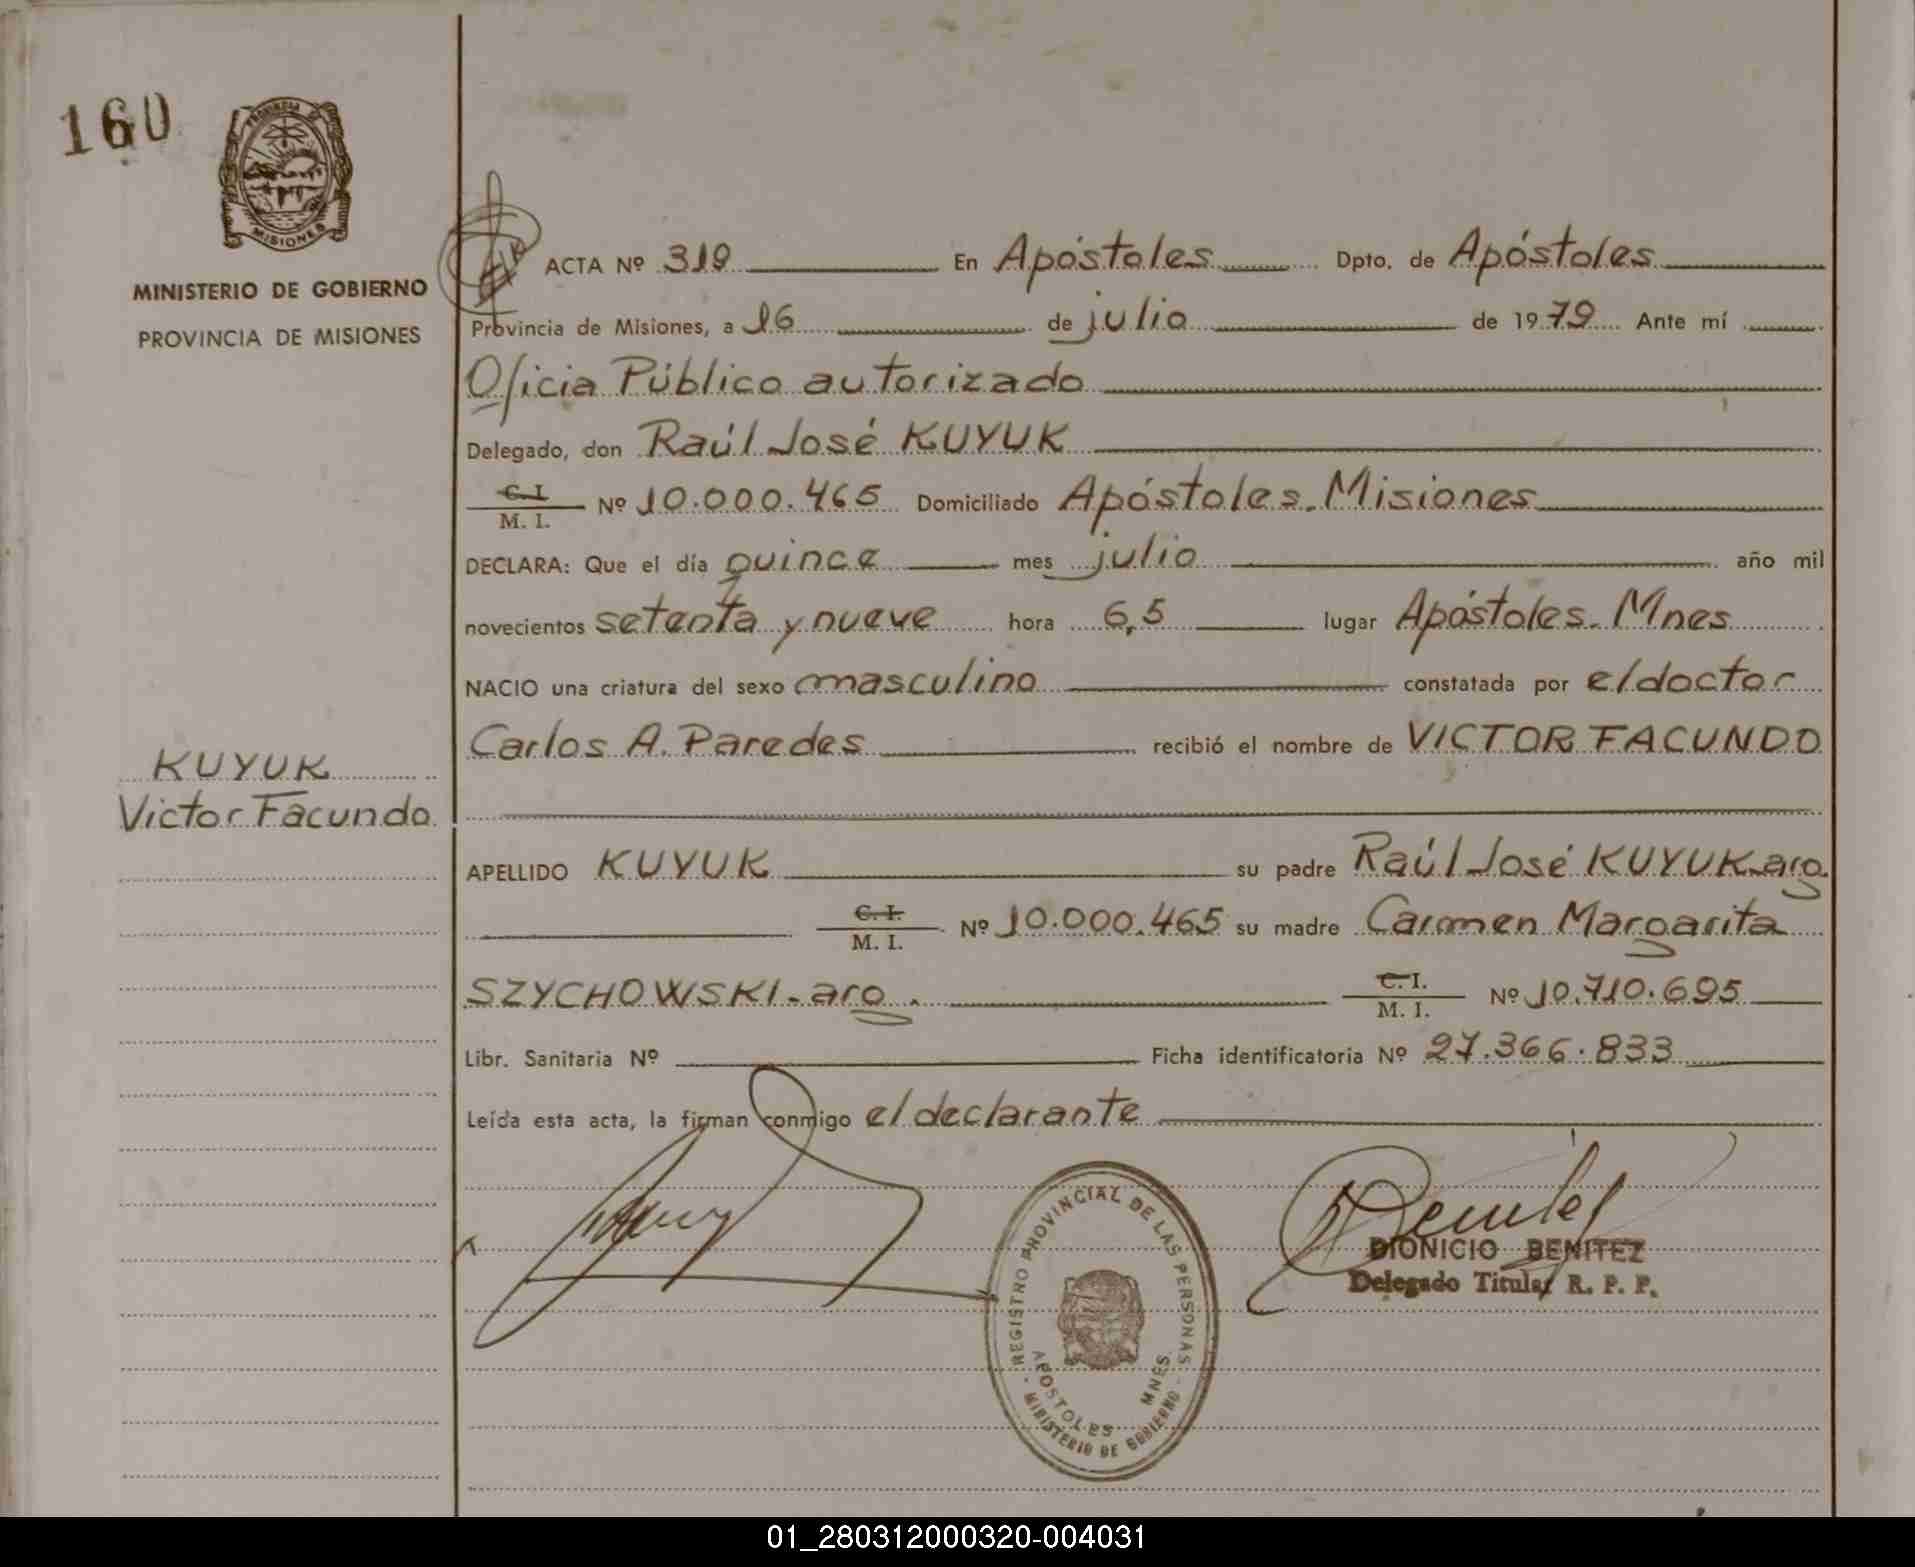 160
PROVINCIA
MISIONES
MINISTERIO DE GOBIERNO
PROVINCIA DE MISIONES
KUYUK
Victor Facundo
ACTA Nº 319 En Apóstoles Dpto. de Apóstoles
Provincia de Misiones, a 16 de julio de 1979 Ante mí
Oficia Público autorizado
Delegado, don Raúl José KUYUK
C. I. / M. I. Nº 10.000.465 Domiciliado Apóstoles. Misiones
DECLARA: Que el día quince mes julio año mil
novecientos setenta y nueve hora 6,5 lugar Apóstoles. Mnes
NACIO una criatura del sexo masculino constatada por el doctor
Carlos A. Paredes recibió el nombre de VICTOR FACUNDO
APELLIDO KUYUK su padre Raúl José KUYUK-arg.
C. I. / M. I. Nº 10.000.465 su madre Carmen Margarita
SZYCHOWSKI-arg. C. I. / M. I. Nº 10.710.695
Libr. Sanitaria Nº Ficha identificatoria Nº 27.366.833
Leída esta acta, la firman conmigo el declarante
REGISTRO PROVINCIAL DE LAS PERSONAS
APOSTOLES MNES.
MINISTERIO DE GOBIERNO
DIONICIO BENITEZ
Delegado Titular R. P. P.
01_280312000320-004031